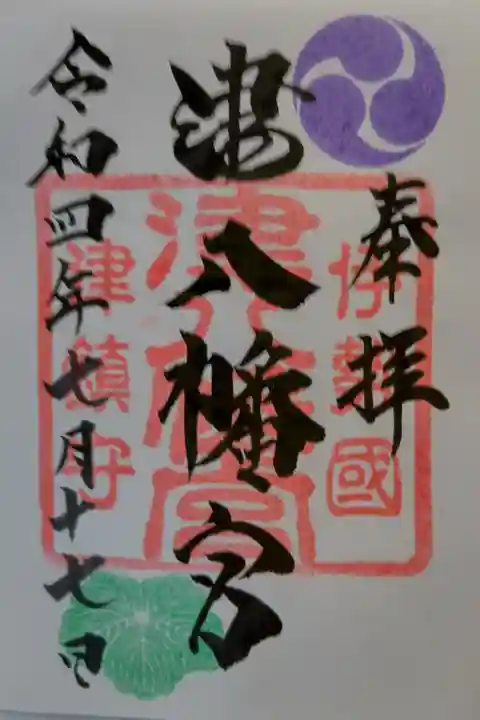 奉拝
伊勢國
津八幡宮
津八幡宮
津鎮守
令和四年七月十七日